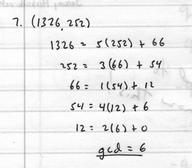 7. (1326, 252)
1326 = 5(252) + 66
252 = 3(66) + 54
66 = 1(54) + 12
54 = 4(12) + 6
12 = 2(6) + 0
gcd = 6